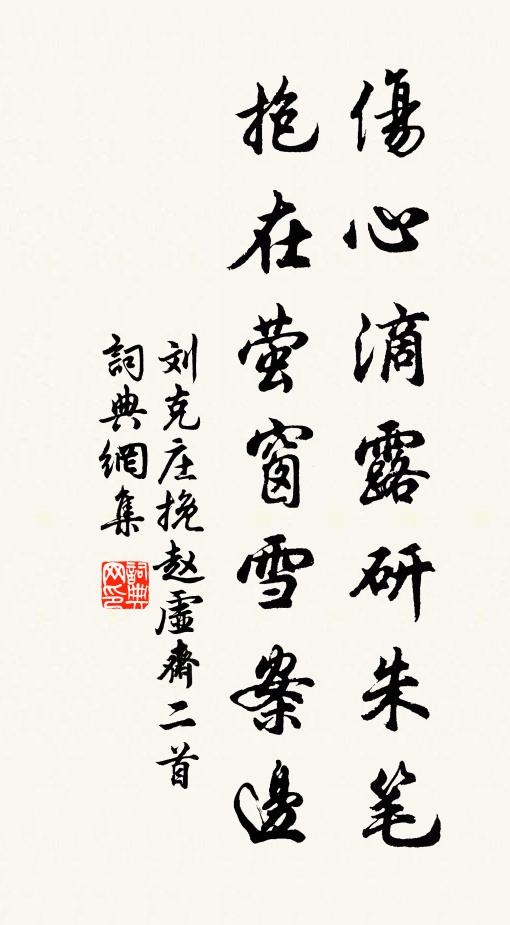 傷心滴露研朱笔
抱在萤窗雪案邊
刘克庄挽赵虚齋二首
詞典網集
詞典网印